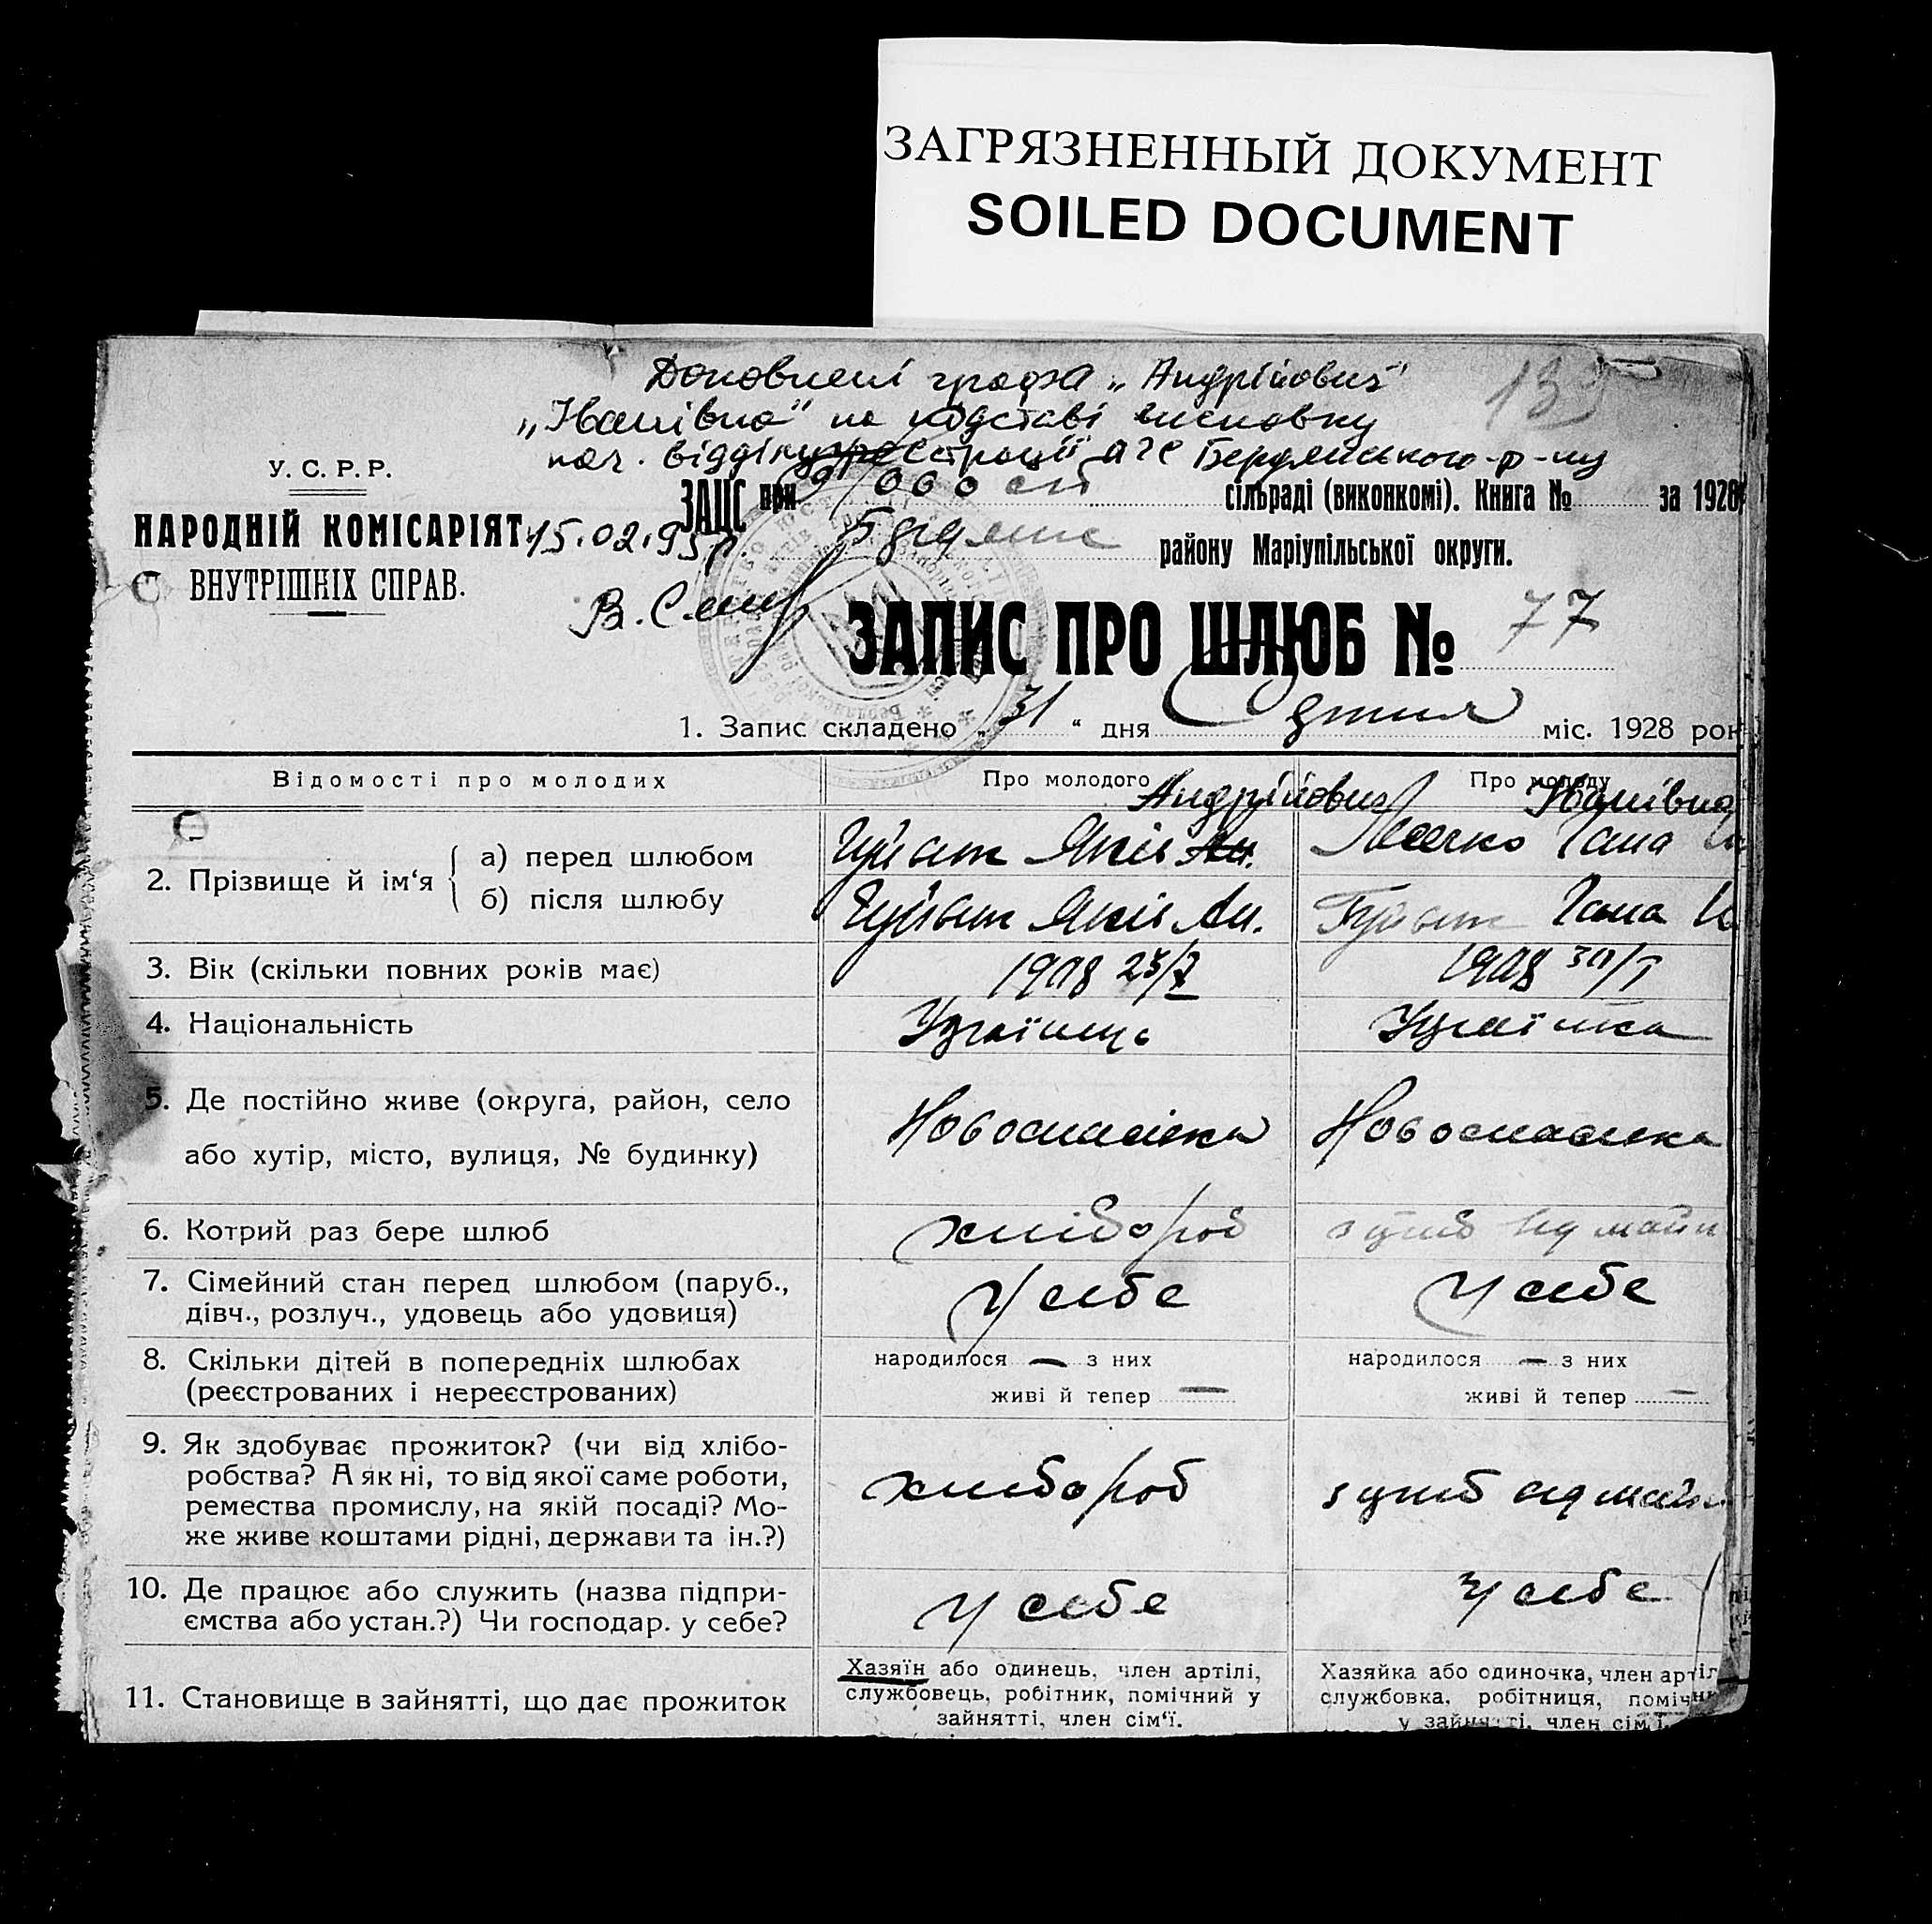 ЗАГРЯЗНЕННЫЙ ДОКУМЕНТ
SOILED DOCUMENT
Доповнені графа „Андрійович"
„Іванівна" на підставі висновку
нач. відділу реєстрації АГС Бердянського р-ну
15.02.95р.
У. С. Р. Р.
НАРОДНІЙ КОМІСАРІЯТ
ВНУТРІШНІХ СПРАВ.
ЗАЦС при сільраді (виконкомі). Книга № за 1928
району Маріупільської округи.
ЗАПИС ПРО ШЛЮБ № 77
1. Запис складено „ 31 " дня міс. 1928 рок
Відомості про молодих
Про молодого
Про молоду
Андрійович
Іванівна
2. Прізвище й ім'я
а) перед шлюбом
Яків Ан.
Гана
б) після шлюбу
Яків Ан.
Гана
3. Вік (скільки повних років має)
1908
1908
4. Національність
Українець
Українка
5. Де постійно живе (округа, район, село
або хутір, місто, вулиця, № будинку)
Новоспаська
Новоспаська
6. Котрий раз бере шлюб
хлібороб
7. Сімейний стан перед шлюбом (паруб.,
дівч., розлуч., удовець або удовиця)
у себе
у себе
8. Скільки дітей в попередніх шлюбах
(реєстрованих і нереєстрованих)
народилося — з них
живі й тепер —
народилося — з них
живі й тепер —
9. Як здобуває прожиток? (чи від хлібо-
робства? А як ні, то від якої саме роботи,
ремества промислу, на якій посаді? Мо-
же живе коштами рідні, держави та ін.?)
хлібороб
10. Де працює або служить (назва підпри-
ємства або устан.?) Чи господар. у себе?
у себе
у себе
11. Становище в зайнятті, що дає прожиток
Хазяїн або одинець, член артілі,
службовець, робітник, помічний у
зайнятті, член сім'ї.
Хазяйка або одиночка, член артіл
службовка, робітниця, помічн
у зайнятті, член сім'ї.